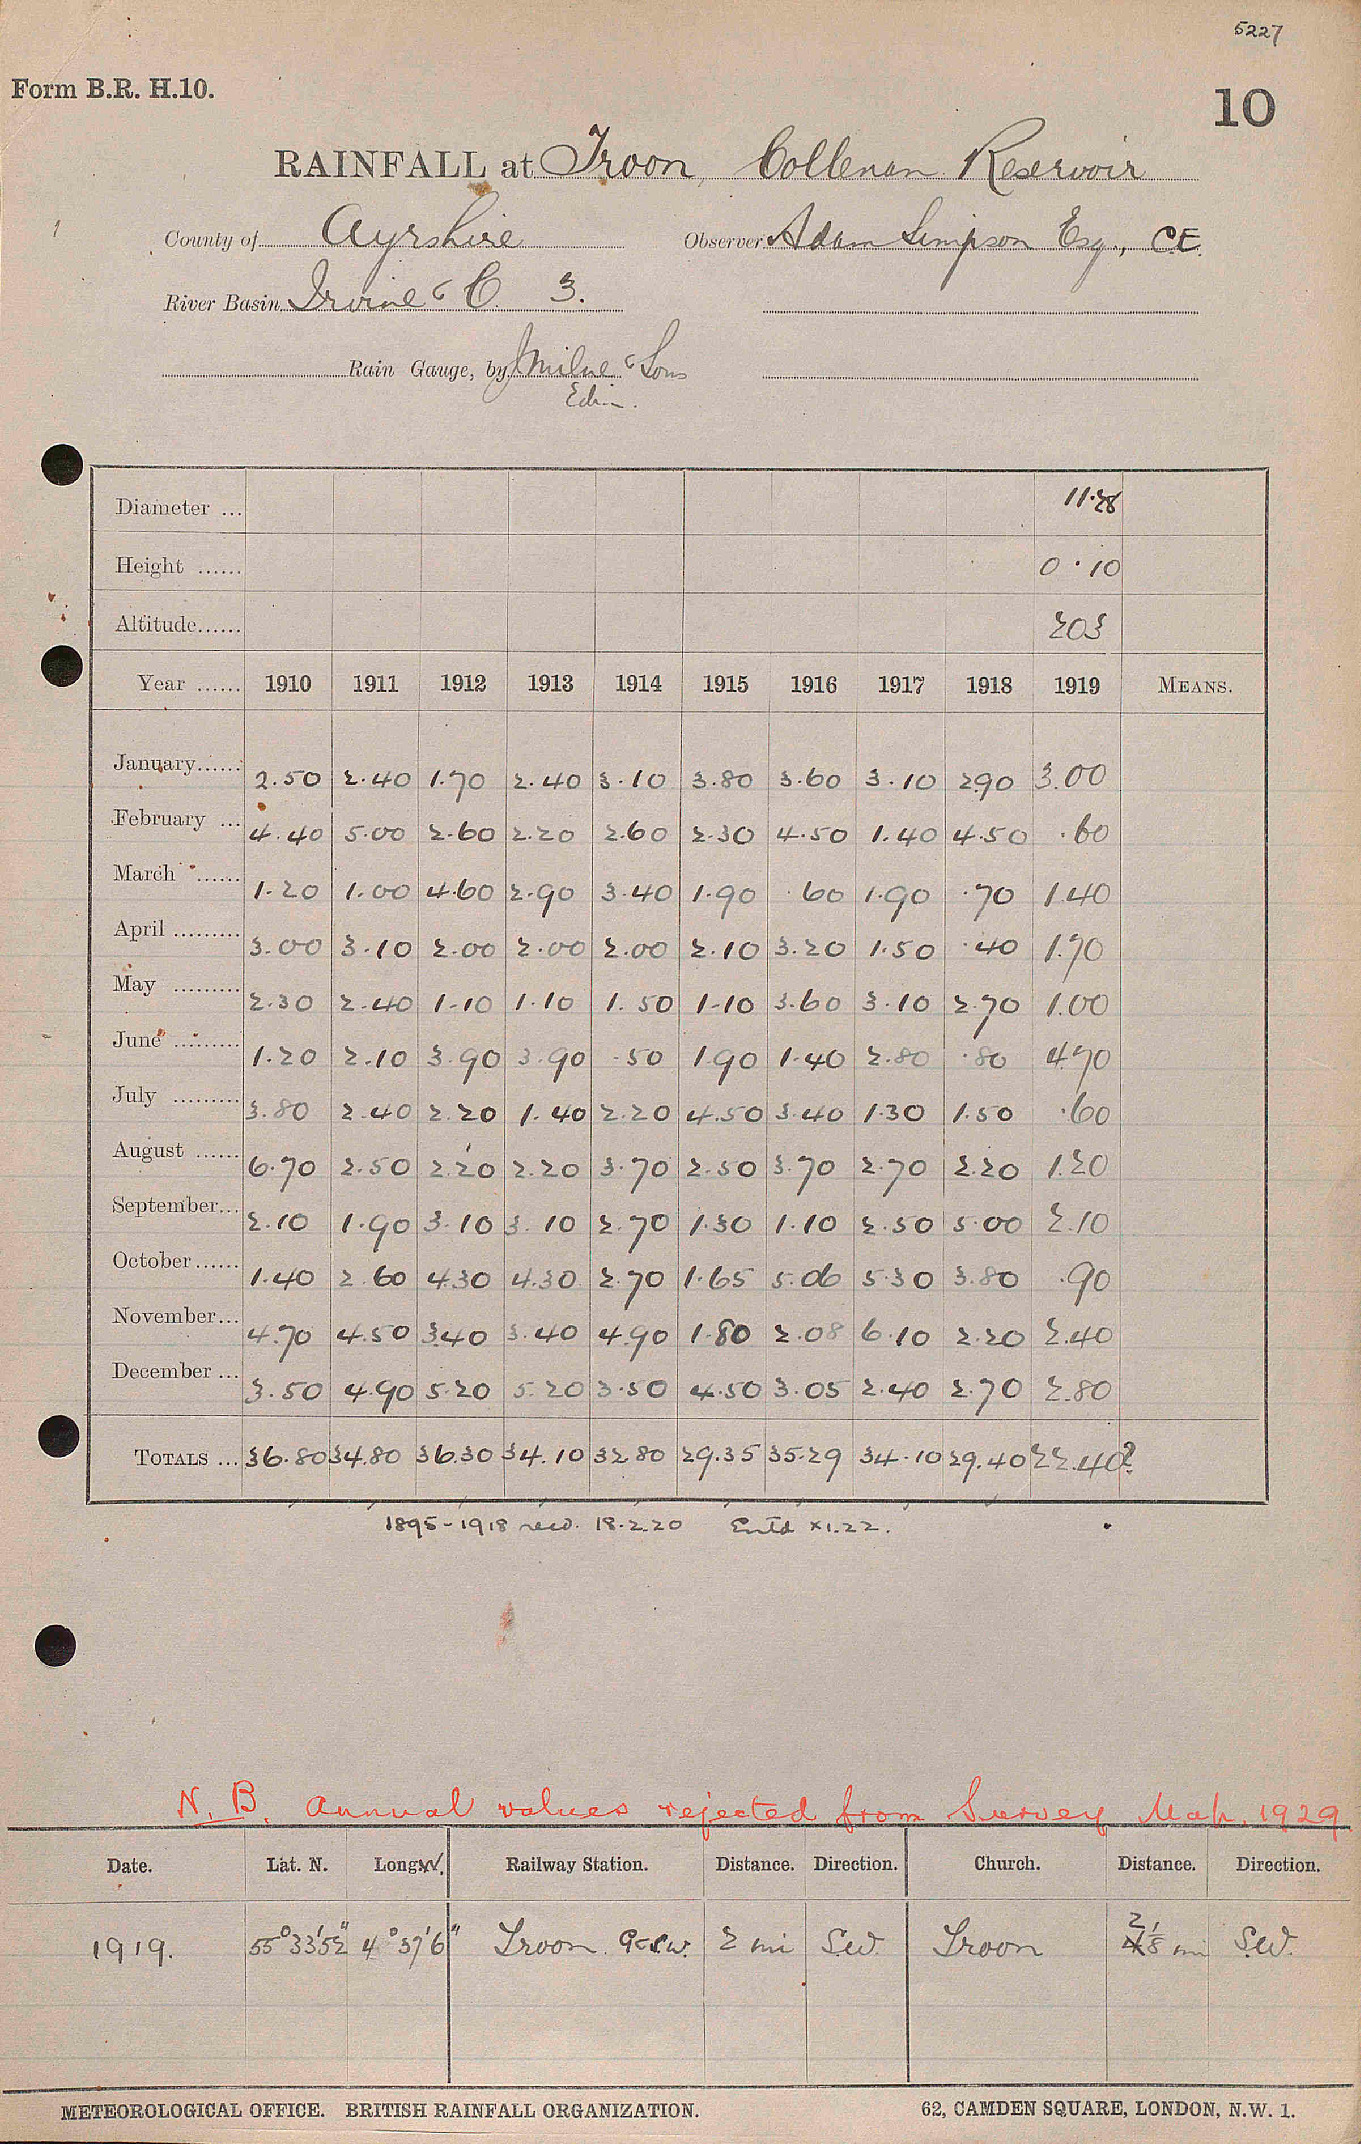 5227
Form B.R. H.10.
10
RAINFALL at Troon, Collenan Reservoir
County of Ayrshire Observer Adam Simpson Esq., C.E.
River Basin Irvine & C. 3.
Rain Gauge, by J Milne & Sons
Edin.
Diameter ... 11.28
Height ...... 0.10
Altitude...... 203
Year ...... 1910 1911 1912 1913 1914 1915 1916 1917 1918 1919 MEANS.
January...... 2.50 2.40 1.70 2.40 3.10 3.80 3.60 3.10 2.90 3.00
February ... 4.40 5.00 2.60 2.20 2.60 2.30 4.50 1.40 4.50 .60
March ...... 1.20 1.00 4.60 2.90 3.40 1.90 .60 1.90 .70 1.40
April ......... 3.00 3.10 2.00 2.00 2.00 2.10 3.20 1.50 .40 1.70
May ......... 2.30 2.40 1.10 1.10 1.50 1.10 3.60 3.10 2.70 1.00
June ......... 1.20 2.10 3.90 3.90 .50 1.90 1.40 2.80 .80 4.70
July ......... 3.80 2.40 2.20 1.40 2.20 4.50 3.40 1.30 1.50 .60
August ...... 6.70 2.50 2.20 2.20 3.70 2.50 3.70 2.70 2.20 1.20
September... 2.10 1.90 3.10 3.10 2.70 1.30 1.10 2.50 5.00 2.10
October...... 1.40 2.60 4.30 4.30 2.70 1.65 5.06 5.30 3.80 .90
November... 4.70 4.50 3.40 3.40 4.90 1.80 2.08 6.10 2.20 2.40
December ... 3.50 4.90 5.20 5.20 3.50 4.50 3.05 2.40 2.70 2.80
TOTALS ... 36.80 34.80 36.30 34.10 32.80 29.35 35.29 34.10 29.40 22.40?
1895-1918 recd. 18.2.20 Entd x1.22.
N.B. Annual values rejected from Survey Map. 1929
Date. Lat. N. Long. W. Railway Station. Distance. Direction. Church. Distance. Direction.
1919. 55°33'52" 4°37'6" Troon G&S.W. 2 mi S.W. Troon 2 1/8 mi S.W.
METEOROLOGICAL OFFICE. BRITISH RAINFALL ORGANIZATION. 62, CAMDEN SQUARE, LONDON, N.W. 1.